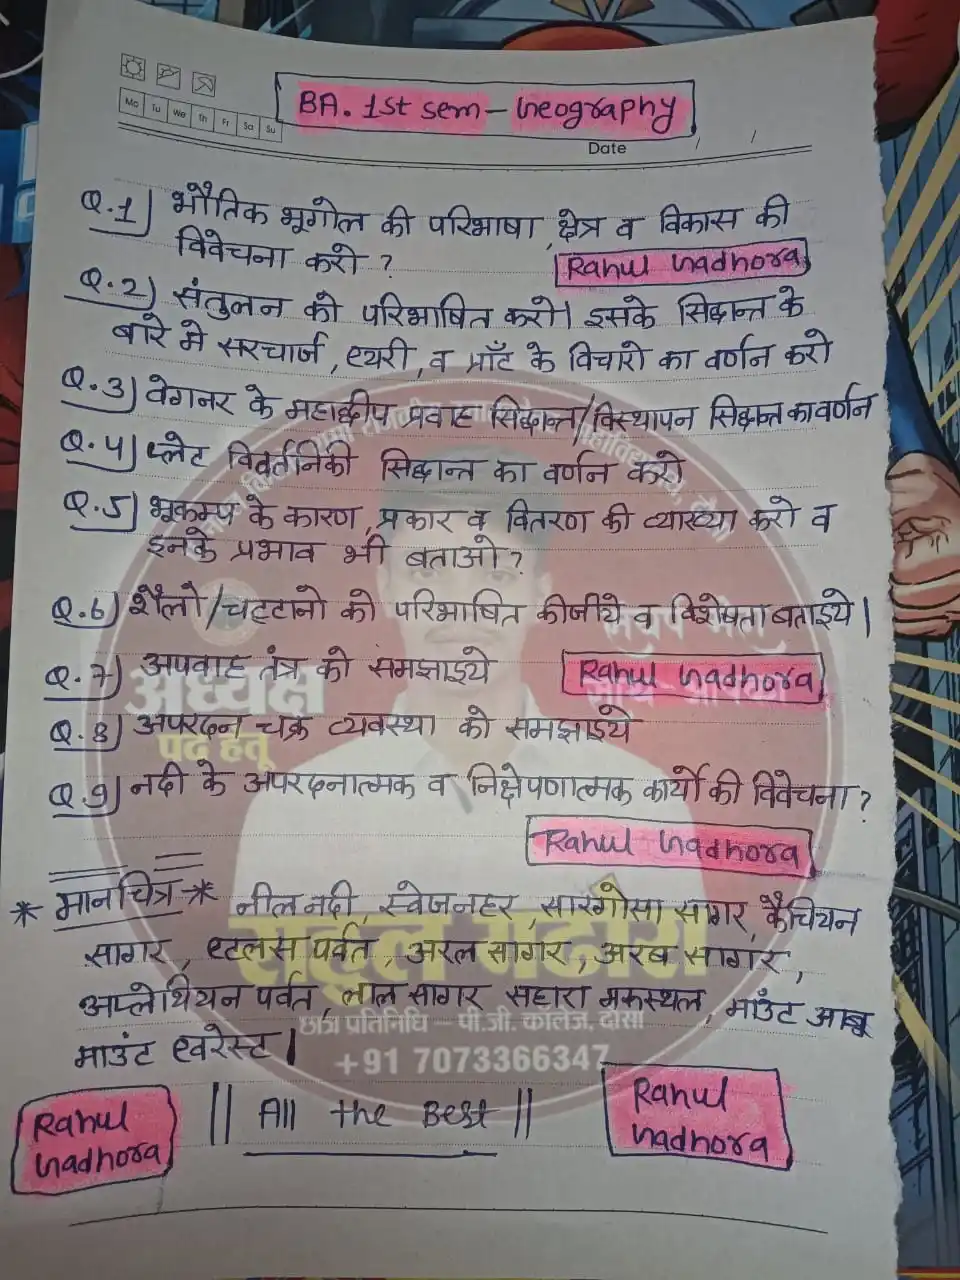 BA. 1st sem – Geography
Mo Tu We Th Fr Sa Su
Date
Q.1) भौतिक भूगोल की परिभाषा, क्षेत्र व विकास की
विवेचना करो ?
Rahul Gadhora
Q.2) संतुलन को परिभाषित करो। इसके सिद्धान्त के
बारे मे सरचार्ज, एयरी, व प्राँट के विचारो का वर्णन करो
Q.3) वेगनर के महाद्वीप प्रवाह सिद्धान्त/विस्थापन सिद्धान्त का वर्णन
Q.4) प्लेट विवर्तनिकी सिद्धान्त का वर्णन करो
Q.5) भूकम्प के कारण, प्रकार व वितरण की व्याख्या करो व
इनके प्रभाव भी बताओ ?
Q.6) शैलो/चट्टानो को परिभाषित कीजीये व विशेषता बताइये।
Q.7) अपवाह तंत्र को समझाइये
Rahul Gadhora
Q.8) अपरदन चक्र व्यवस्था को समझाइये
Q.9) नदी के अपरदनात्मक व निक्षेपणात्मक कार्यो की विवेचना ?
Rahul Gadhora
* मानचित्र * नील नदी, स्वेजनहर, सारगोसा सागर, कैचियन
सागर, एटलस पर्वत, अरल सागर, अरब सागर,
अप्लेशियन पर्वत, लाल सागर सहारा मरुस्थल, माउँट आबू
माउंट एवरेस्ट।
Rahul Gadhora
|| All the Best ||
Rahul Gadhora
अध्यक्ष
पद हेतू
राहुल गढोरा
छात्र प्रतिनिधि – पी.जी. कॉलेज, दौसा
+91 7073366347